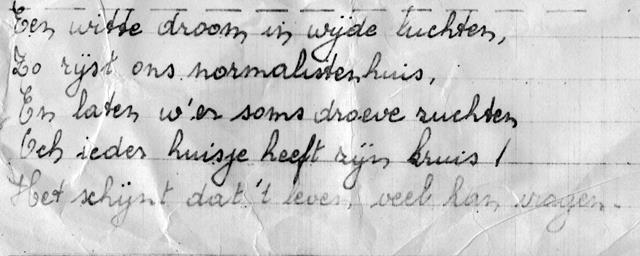 Een witte droom in wijde luchten,
Zo rijst ons normalistenhuis,
En laten w'er soms droeve zuchten
Och ieder huisje heeft zijn kruis!
Het schijnt dat 't leven veel kan vragen.